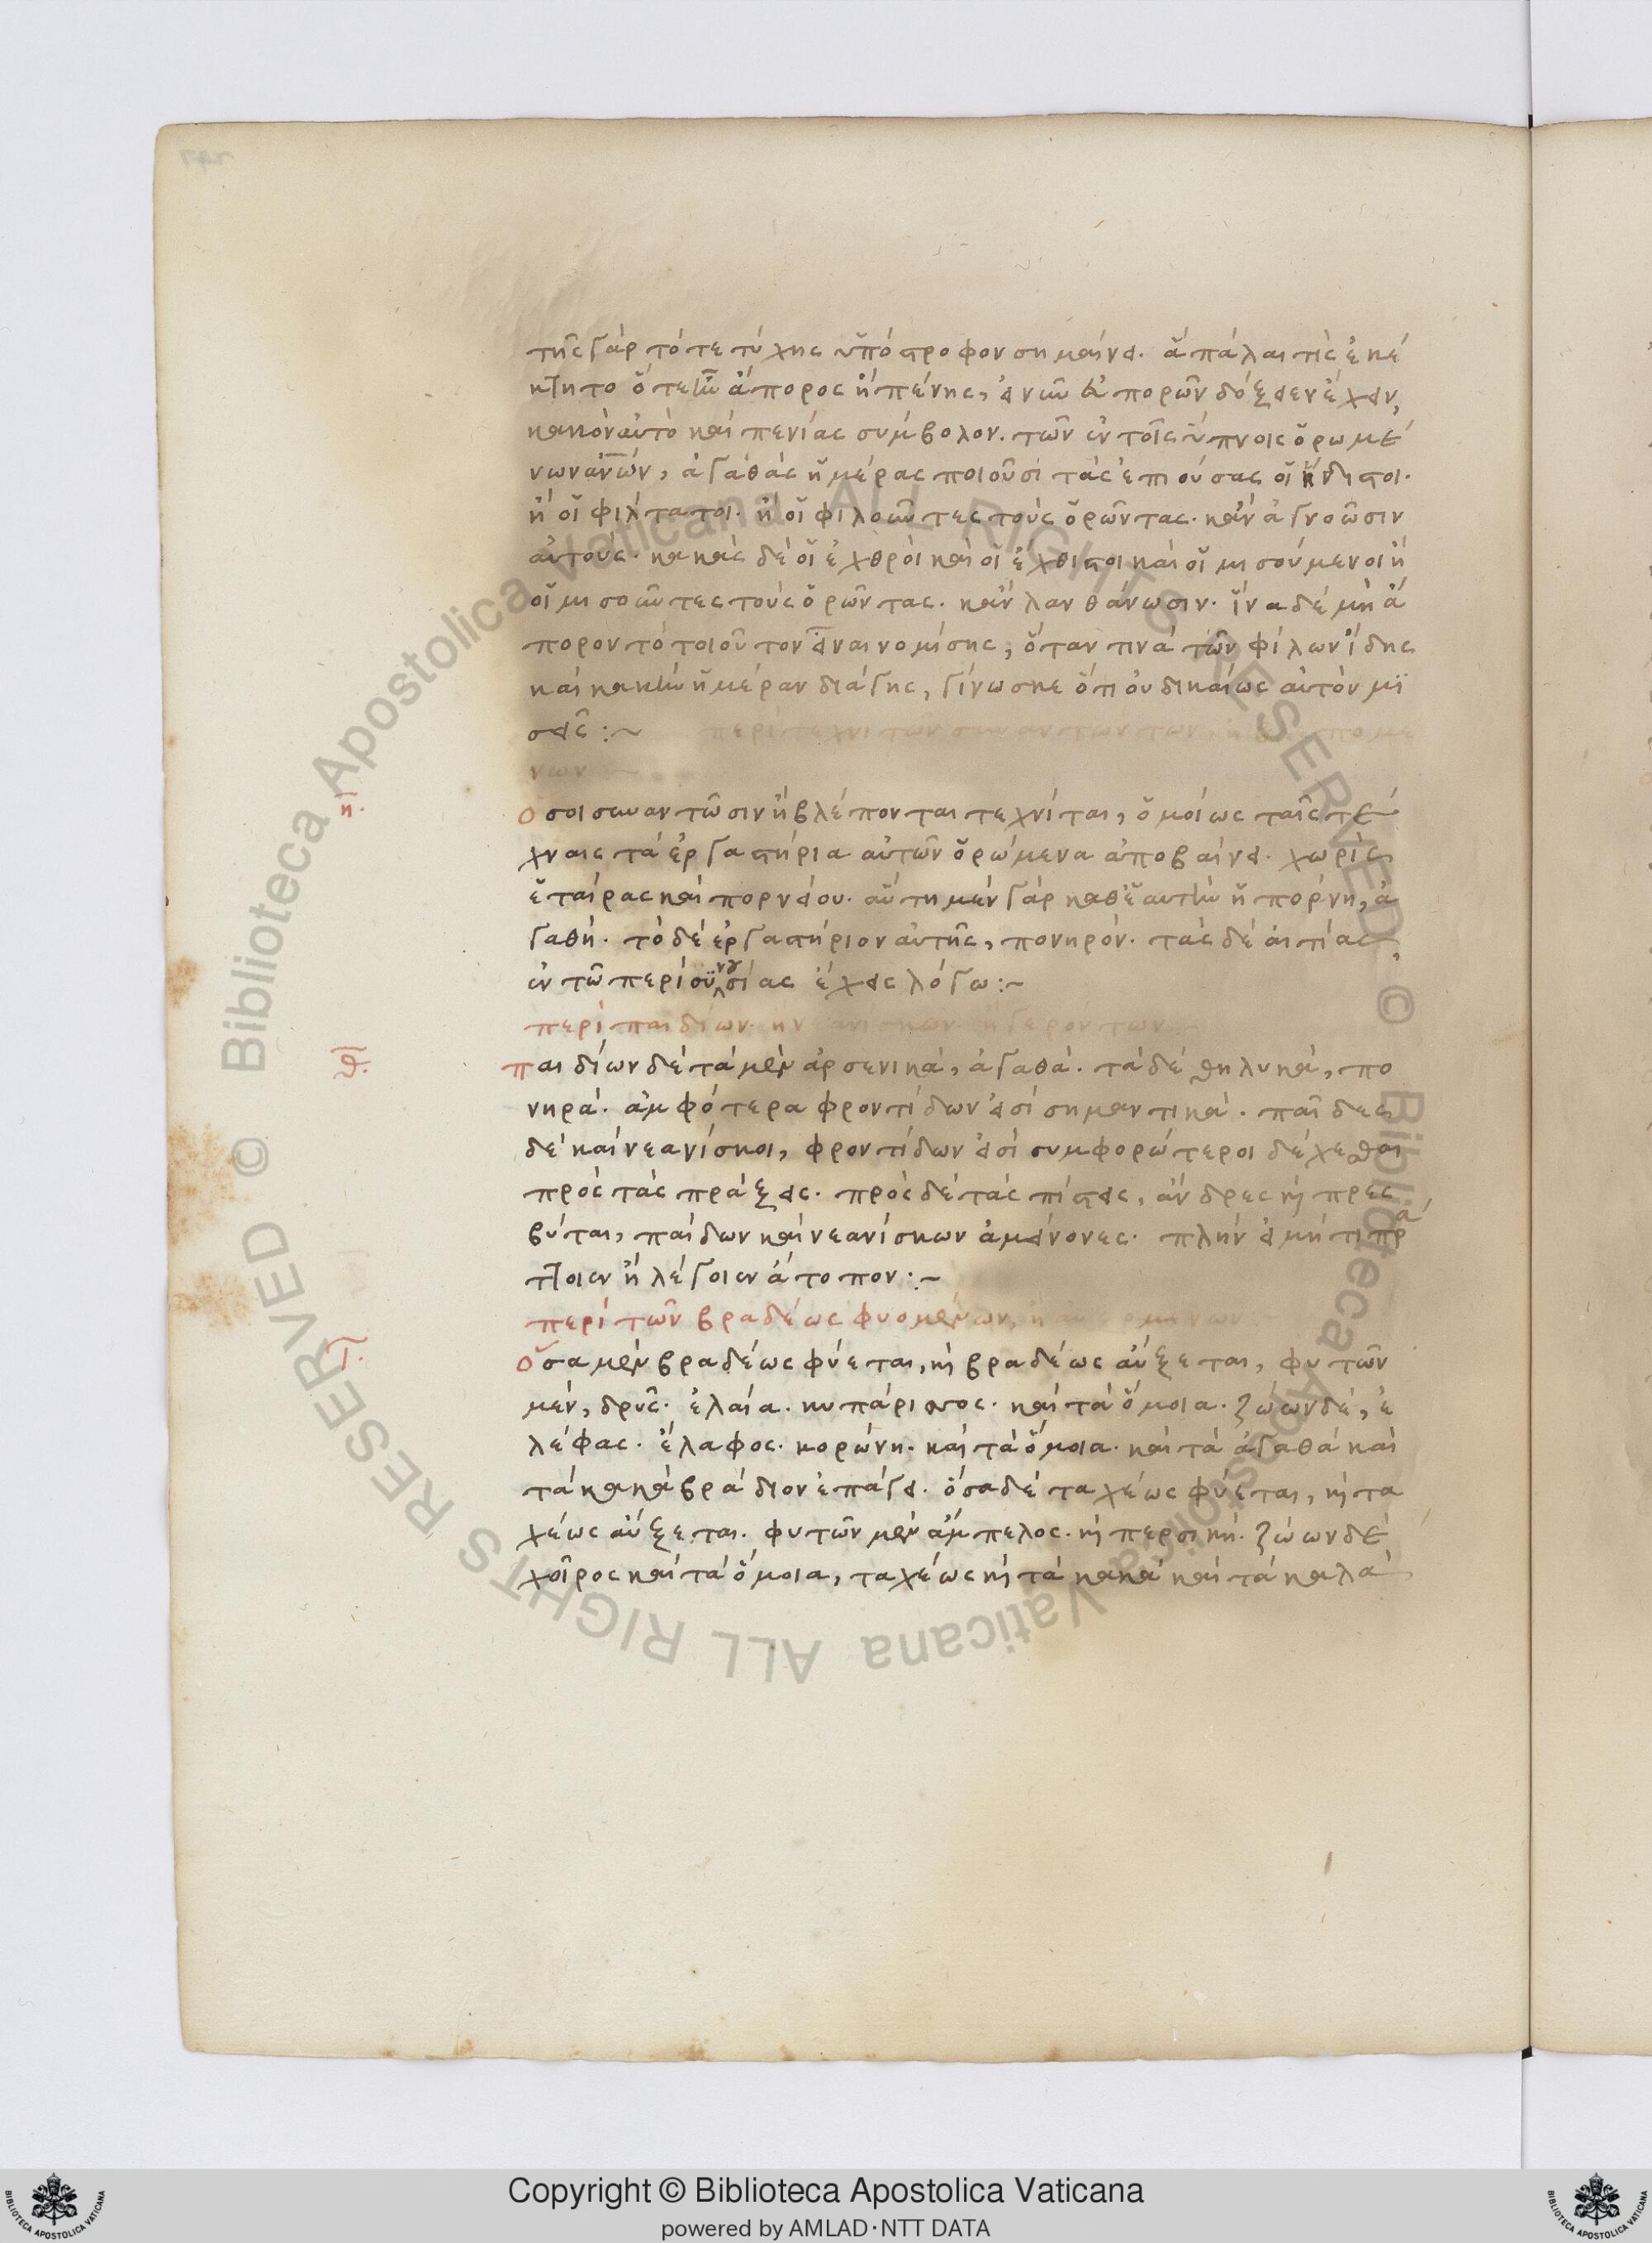 τῆς γὰρ τότε τύχης ὑπόστροφον σημαίνει. ἃ πάλαι τὶς ἐκέ
κτητο ὅτε ἦν ἄπορος ἢ πένης, εἰ νῦν εὐπορῶν δόξειεν ἔχειν,
κακὸν αὐτὸ καὶ πενίας σύμβολον. τῶν ἐν τοῖς ὕπνοις ὁρωμέ
νων ἀνῶν, ἀγαθὰς ἡμέρας ποιοῦσι τὰς ἐπιούσας οἱ ἥδιστοι.
ἢ οἱ φίλτατοι. ἢ οἱ φιλοῦντες τοὺς ὁρῶντας. κἂν ἀγνοῶσιν
αὐτούς. κακὰς δὲ οἱ ἐχθροὶ καὶ οἱ ἔχθιστοι καὶ οἱ μισούμενοι ἢ
οἱ μισοῦντες τοὺς ὁρῶντας. κἂν λανθάνωσιν. ἵνα δὲ μὴ ἄ
πορον τὸ τοιοῦτον εἶναι νομίσης, ὅταν τινὰ τῶν φίλων ἴδης
καὶ κακὴν ἡμέραν διάγης, γίνωσκε ὅτι οὐ δικαίως αὐτὸν μι
σεῖς :~ περὶ τεχνιτῶν συναντώντων, ἢ βλεπομέ
νων
η.
ὅσοι συναντῶσιν ἢ βλέπονται τεχνίται, ὁμοίως ταῖς τέ
χναις τὰ ἐργαστήρια αὐτῶν ὁρώμενα ἀποβαίνει. χωρὶς
ἑταίρας καὶ πορνείου. αὕτη μὲν γὰρ καθ' ἑαυτὴν ἡ πόρνη, ἀ
γαθή. τὸ δὲ ἐργαστήριον αὐτῆς, πονηρόν. τὰς δὲ αἰτίας
ἐν τῶ περὶ συνουσίας ἔχεις λόγω :~
περὶ παιδίων. ἢ νεανίσκων. ἢ γερόντων
θ.
παιδίων δὲ τὰ μὲν ἀρσενικά, ἀγαθά. τὰ δὲ θηλυκά, πο
νηρά. ἀμφότερα φροντίδων εἰσὶ σημαντικά. παῖδες
δὲ καὶ νεανίσκοι, φροντίδων εἰσὶ συμφορώτεροι δέχεσθαι
πρὸς τὰς πράξεις. πρὸς δὲ τὰς πίστεις, ἄνδρες καὶ πρεσ
βύται, παίδων καὶ νεανίσκων ἀμείνονες. πλὴν εἰ μή τι πρά
ττοιεν ἢ λέγοιεν ἄτοπον :~
περὶ τῶν βραδέως φυομένων, ἢ αὐξομένων
ι.
ὅσα μὲν βραδέως φύεται, καὶ βραδέως αὔξεται, φυτῶν
μέν, δρῦς. ἐλαία. κυπάρισσος. καὶ τὰ ὅμοια. ζώων δέ, ἐ
λέφας. ἔλαφος. κορώνη. καὶ τὰ ὅμοια. καὶ τὰ ἀγαθὰ καὶ
τὰ κακὰ βράδιον ἐπάγει. ὅσα δὲ ταχέως φύεται, καὶ τα
χέως αὔξεται. φυτῶν μὲν ἄμπελος. καὶ περσική. ζώων δὲ
χοῖρος καὶ τὰ ὅμοια, ταχέως καὶ τὰ κακὰ καὶ τὰ καλὰ
© Biblioteca Apostolica Vaticana ALL RIGHTS RESERVED © Biblioteca Apostolica Vaticana ALL RIGHTS RESERVED
Copyright © Biblioteca Apostolica Vaticana
powered by AMLAD·NTT DATA
BIBLIOTECA APOSTOLICA VATICANA
BIBLIOTECA APOSTOLICA VATICANA